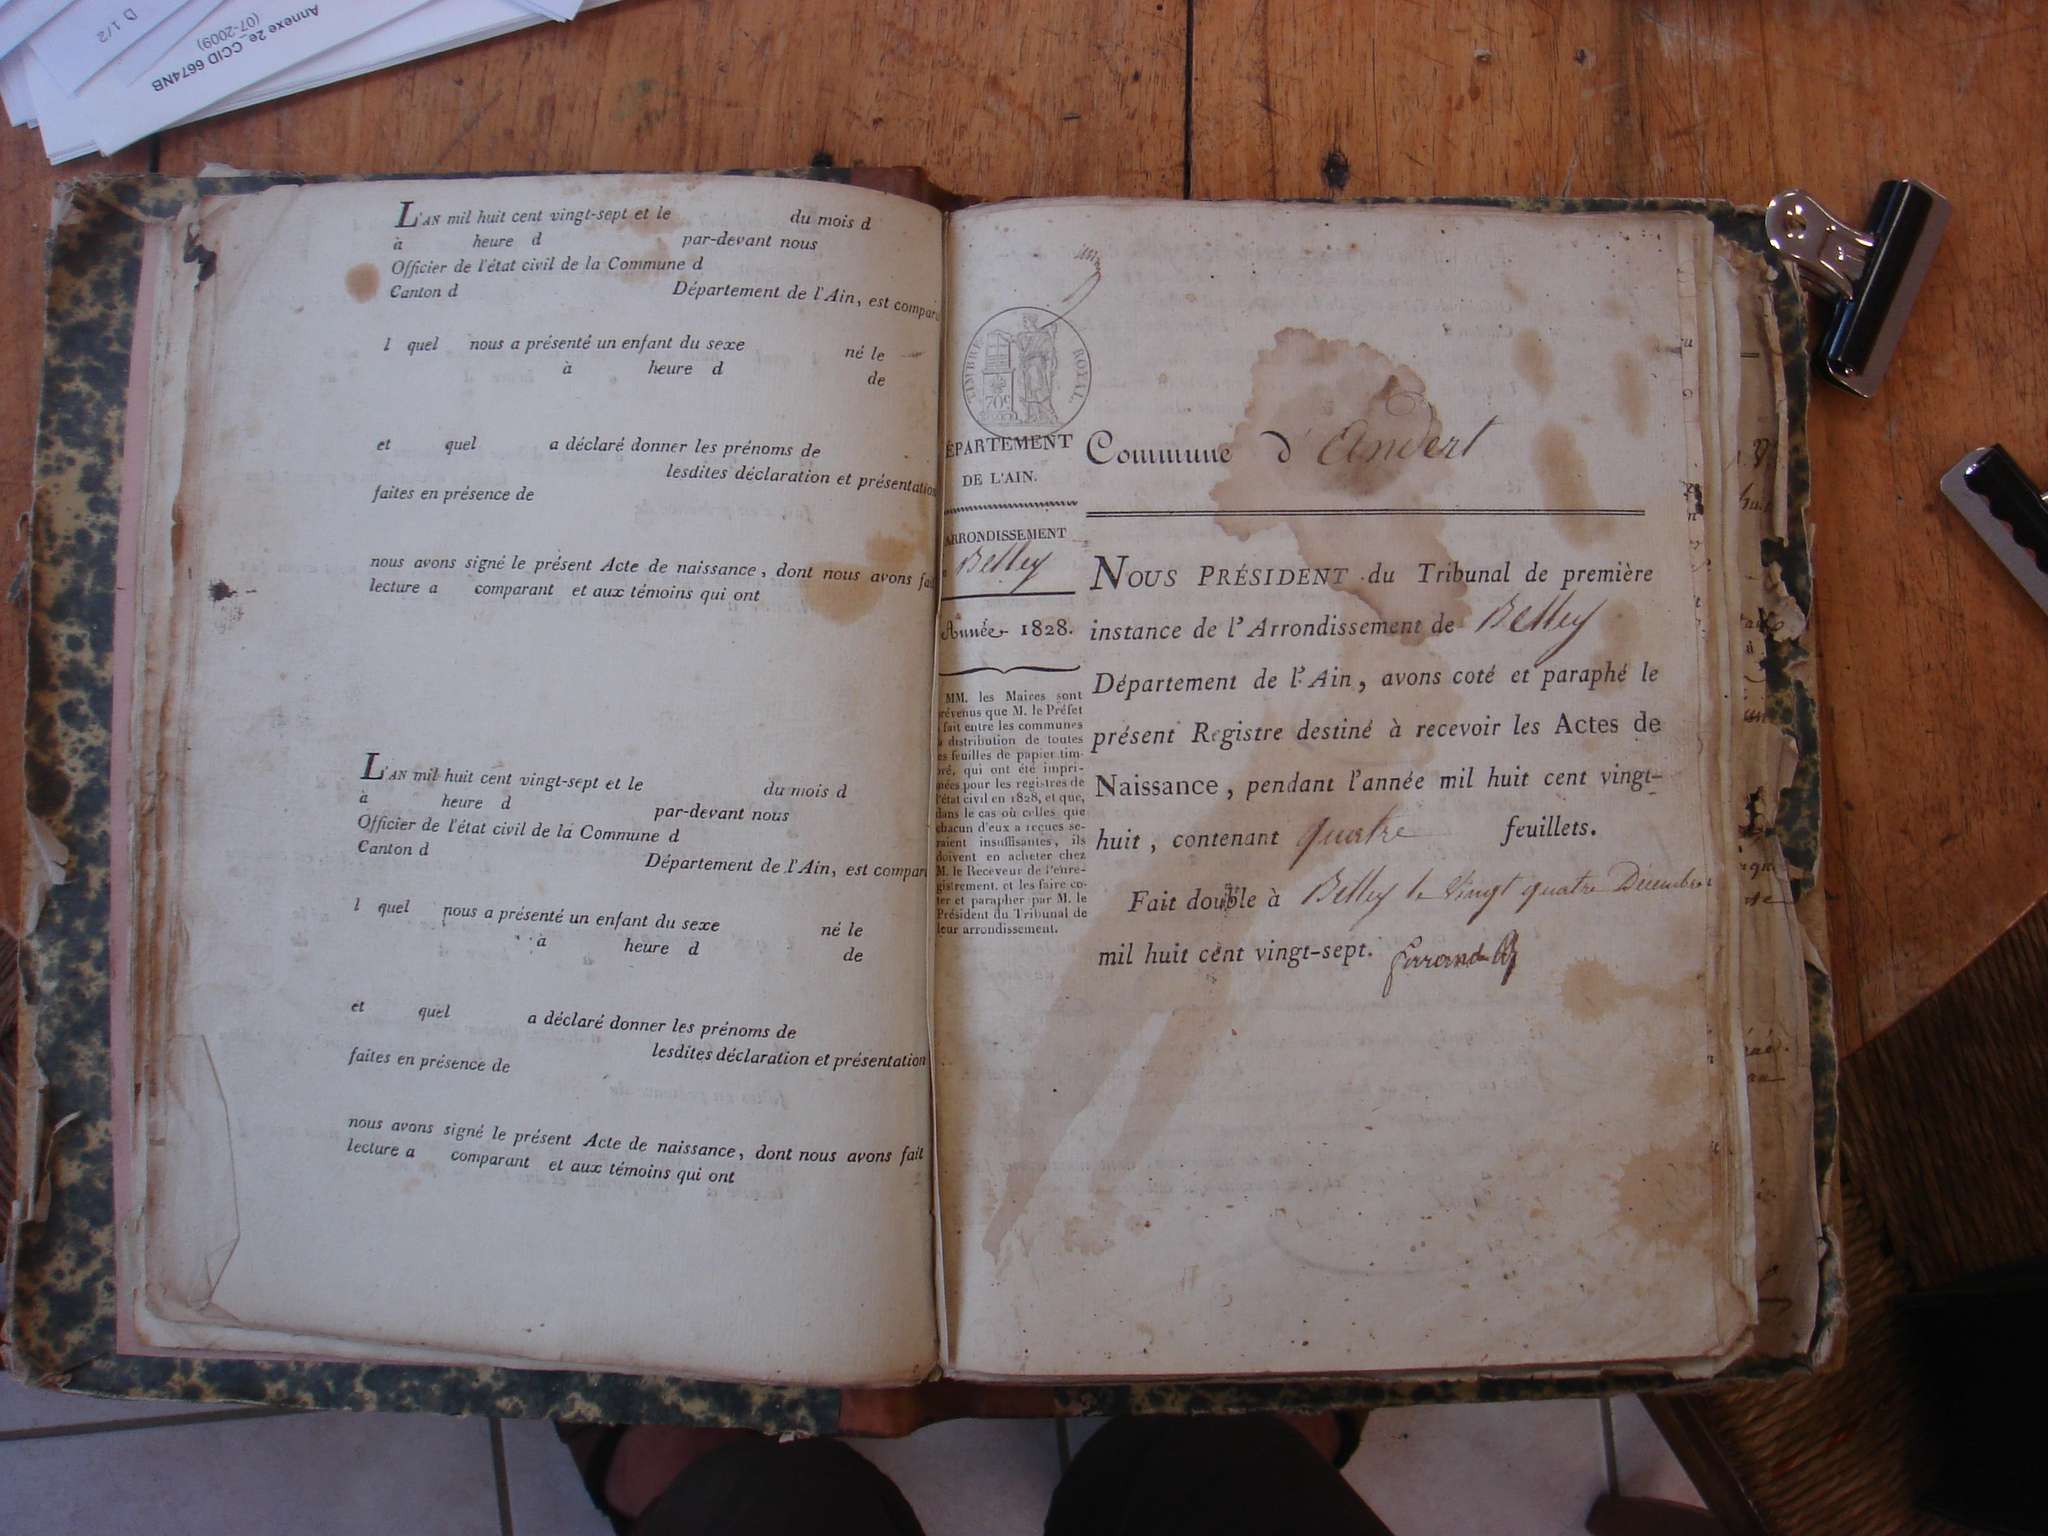 Annexe 2e_CCID 6674NB
(07-2009)
D 1/2
L'AN mil huit cent vingt-sept et le du mois d
à heure d par-devant nous
Officier de l'état civil de la Commune d
Canton d Département de l'Ain, est compar
l quel nous a présenté un enfant du sexe né le
à heure d de
et quel a déclaré donner les prénoms de
lesdites déclaration et présentation
faites en présence de
nous avons signé le présent Acte de naissance, dont nous avons fait
lecture a comparant et aux témoins qui ont
L'AN mil huit cent vingt-sept et le du mois d
à heure d par-devant nous
Officier de l'état civil de la Commune d
Canton d Département de l'Ain, est compar
l quel nous a présenté un enfant du sexe né le
à heure d de
et quel a déclaré donner les prénoms de
lesdites déclaration et présentation
faites en présence de
nous avons signé le présent Acte de naissance, dont nous avons fait
lecture a comparant et aux témoins qui ont
TIMBRE ROYAL
70c
ÉPARTEMENT
DE L'AIN.
ARRONDISSEMENT
Belley
Année 1828.
MM. les Maires sont
révenus que M. le Préfet
fait entre les communes
distribution de toutes
es feuilles de papier tim-
ré, qui ont été impri-
mées pour les registres de
l'état civil en 1828, et que,
dans le cas où celles que
chacun d'eux a reçues se-
raient insuffisantes, ils
doivent en acheter chez
M. le Receveur de l'enre-
gistrement, et les faire co-
ter et parapher par M. le
Président du Tribunal de
leur arrondissement.
Commune d'Andert
NOUS PRÉSIDENT du Tribunal de première
instance de l'Arrondissement de Belley
Département de l'Ain, avons coté et paraphé le
présent Registre destiné à recevoir les Actes de
Naissance, pendant l'année mil huit cent vingt-
huit, contenant quatre feuillets.
Fait double à Belley le Vingt quatre Decembre
mil huit cent vingt-sept.